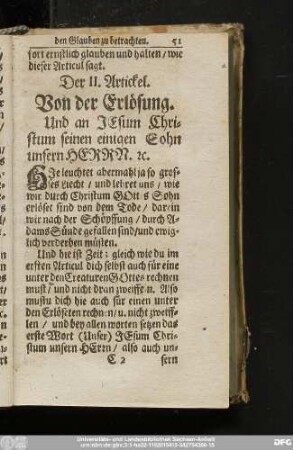 den Glauben zu betrachten. 51
fort ernstlich glauben und halten / wie
dieser Articul sagt.
Der II. Artickel.
Von der Erlösung.
Und an JEsum Chri-
stum seinen einigen Sohn
unsern HERRN. ꝛc.
HJe leuchtet abermahl ja so gros-
ses Liecht / und lehret uns / wie
wir durch Christum GOttes Sohn
erlöset sind von dem Tode / darin
wir nach der Schöpffung / durch A-
dams Sünde gefallen sind / und ewig-
lich verderben müsten.
Und hie ist Zeit: gleich wie du im
ersten Articul dich selbst auch für eine
unter den Creaturen GOttes rechnen
must / und nicht dran zweiffeln. Also
mustu dich hie auch für einen unter
den Erlöseten rechnen / u. nicht zweiff-
len / und bey allen worten setzen das
erste Wort (Unser) JEsum Chri-
stum unsern HErrn / also auch un-
C 2 sern
Universitäts- und Landesbibliothek Sachsen-Anhalt